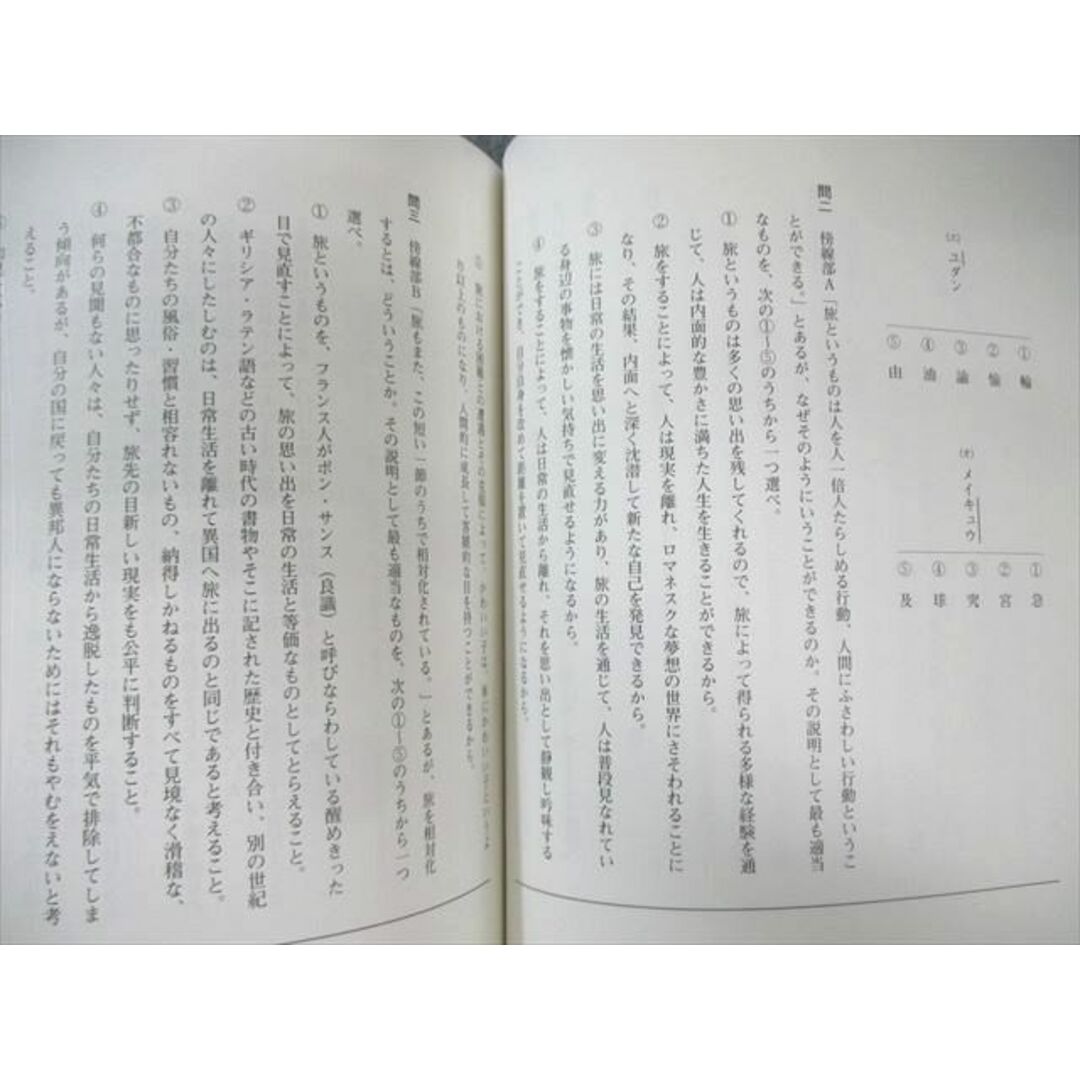 (エ) ユダン
① 輪
② 愉
③ 諭
④ 油
⑤ 由
(オ) メイキュウ
① 急
② 宮
③ 究
④ 球
⑤ 及
問二 傍線部A「旅というものは人を人一倍人たらしめる行動、人間にふさわしい行動というこ
とができる。」とあるが、なぜそのようにいうことができるのか。その説明として最も適当
なものを、次の①〜⑤のうちから一つ選べ。
① 旅というものは多くの思い出を残してくれるので、旅によって得られる多様な経験を通
じて、人は内面的な豊かさに満ちた人生を生きることができるから。
② 旅をすることによって、人は現実を離れ、ロマネスクな夢想の世界にさそわれることに
なり、その結果、内面へと深く沈潜して新たな自己を発見できるから。
③ 旅には日常の生活を思い出に変える力があり、旅の生活を通じて、人は普段見なれてい
る身辺の事物を懐かしい気持ちで見直せるようになるから。
④ 旅をすることによって、人は日常の生活から離れ、それを思い出として静観し吟味する
ことができ、自分自身を改めて距離を置いて見直せるようになるから。
⑤ 旅における困難との遭遇とその克服によって、かわいい子は
り以上のものになり、人間的に成長して客観的な目を持つことができるから。
問三 傍線部B「旅もまた、この短い一節のうちで相対化されている。」とあるが、旅を相対化
するとは、どういうことか。その説明として最も適当なものを、次の①〜⑤のうちから一つ
選べ。
① 旅というものを、フランス人がボン・サンス（良識）と呼びならわしている醒めきった
目で見直すことによって、旅の思い出を日常の生活と等価なものとしてとらえること。
② ギリシア・ラテン語などの古い時代の書物やそこに記された歴史と付き合い、別の世紀
の人々にしたしむのは、日常生活を離れて異国へ旅に出るのと同じであると考えること。
③ 自分たちの風俗・習慣と相容れないもの、納得しかねるものをすべて見境なく滑稽な、
不都合なものに思ったりせず、旅先の目新しい現実をも公平に判断すること。
④ 何らの見聞もない人々は、自分たちの日常生活から逸脱したものを平気で排除してしま
う傾向があるが、自分の国に戻っても異邦人にならないためにはそれもやむをえないと考
えること。